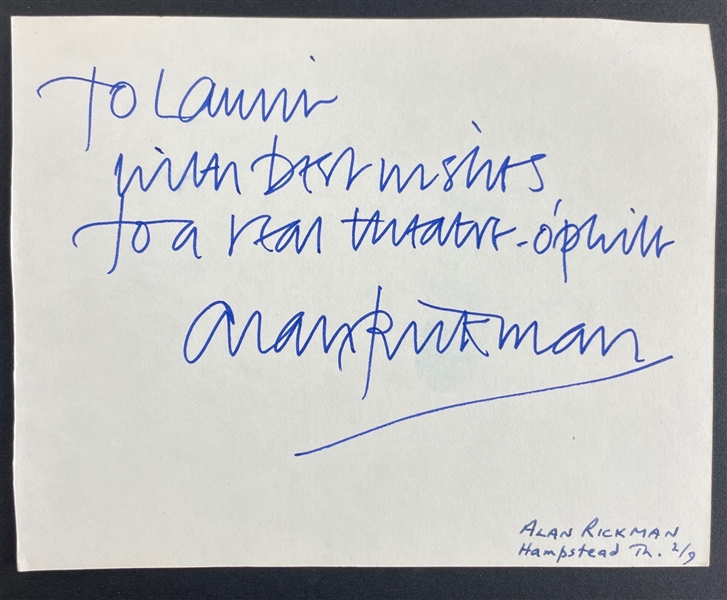 To Laurie
with best wishes
to a real theatre-o'phile
Alan Rickman
ALAN RICKMAN
Hampstead Th. 2/9